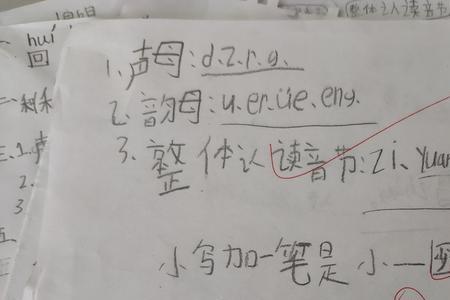 整体认读音节
huí
回
1.声母:d.z.r.g.
2.韵母:u.er.üe.eng.
3.整体认读音节:zi、yuan
三.1.声
2.
3
五
小写加一笔是小一